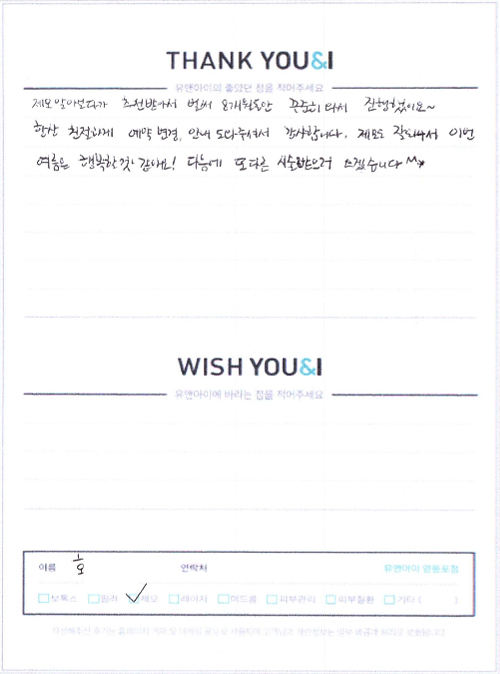 THANK YOU&I
유앤아이의 좋았던 점을 적어주세요
제모 알아보다가 추천받아서 벌써 8개월동안 꾸준히 다시 진행했어요~
항상 친절하게 예약 변경, 안내 도와주셔서 감사합니다. 제모도 잘되서 이번
여름은 행복한것 같아요! 다음에 또다른 시술받으러 오겠습니다 ^^
WISH YOU&I
유앤아이에 바라는 점을 적어주세요
이름 연락처 유앤아이 영등포점
보톡스 필러 제모 레이저 여드름 피부관리 피부질환 기타 ( )